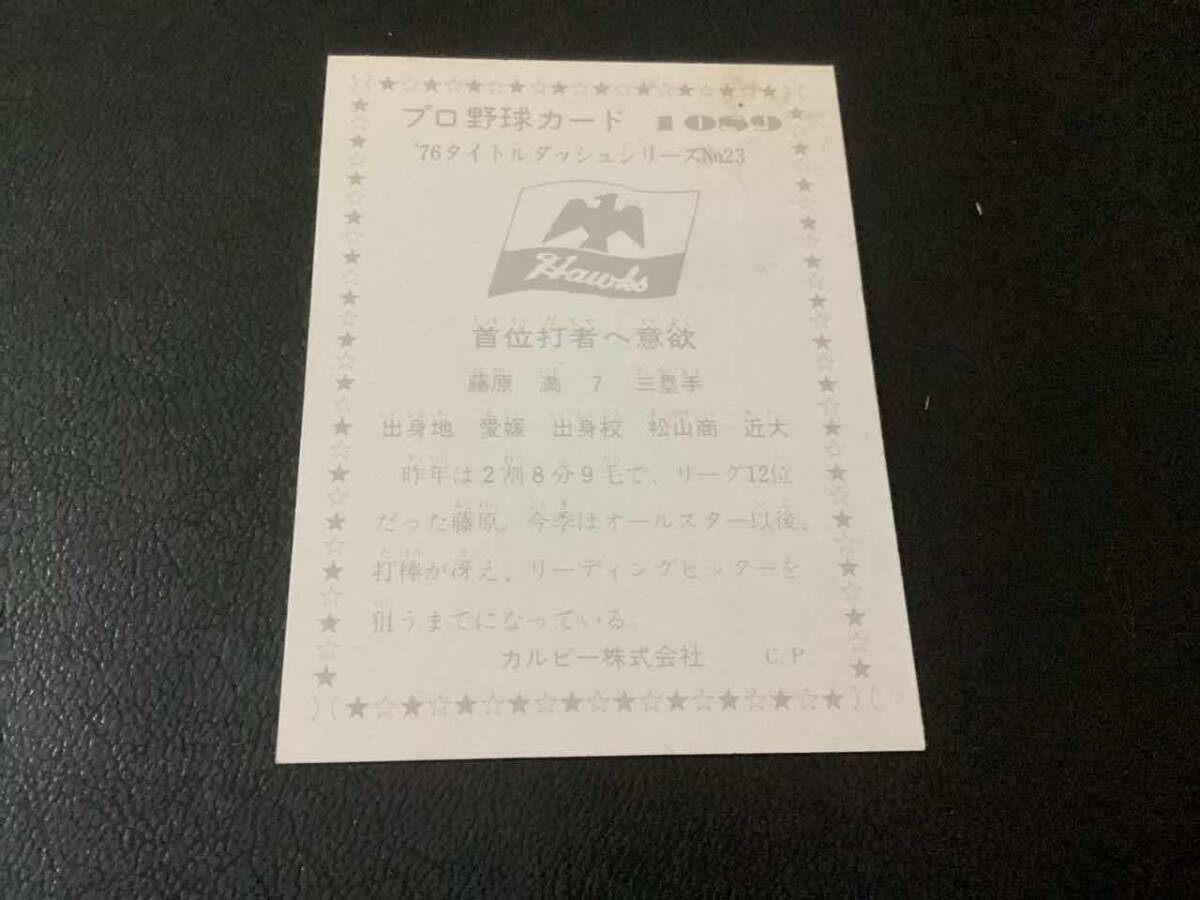 プロ野球カード 1089
'76タイトルダッシュシリーズNo.23
Hawks
首位打者へ意欲
藤原 満 7 三塁手
出身地 愛媛 出身校 松山商 近大
昨年は2割8分9毛で、リーグ12位
だった藤原。今季はオールスター以後、
打棒が冴え、リーディングヒッターを
狙うまでになっている。
カルビー株式会社 CP